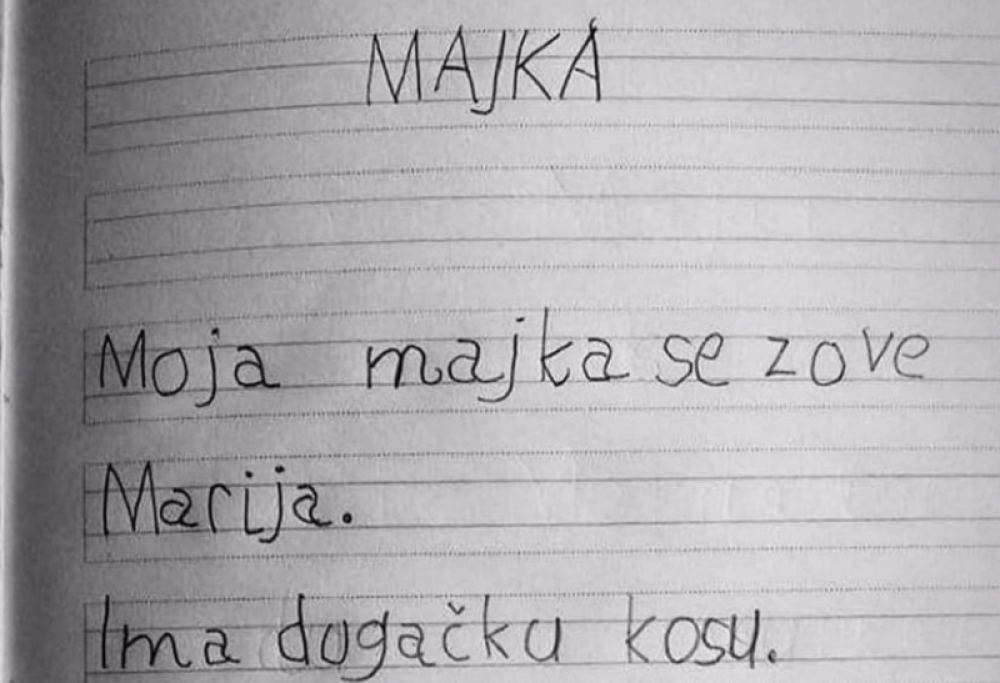 MAJKA
Moja majka se zove
Marija.
Ima dugačku kosu.